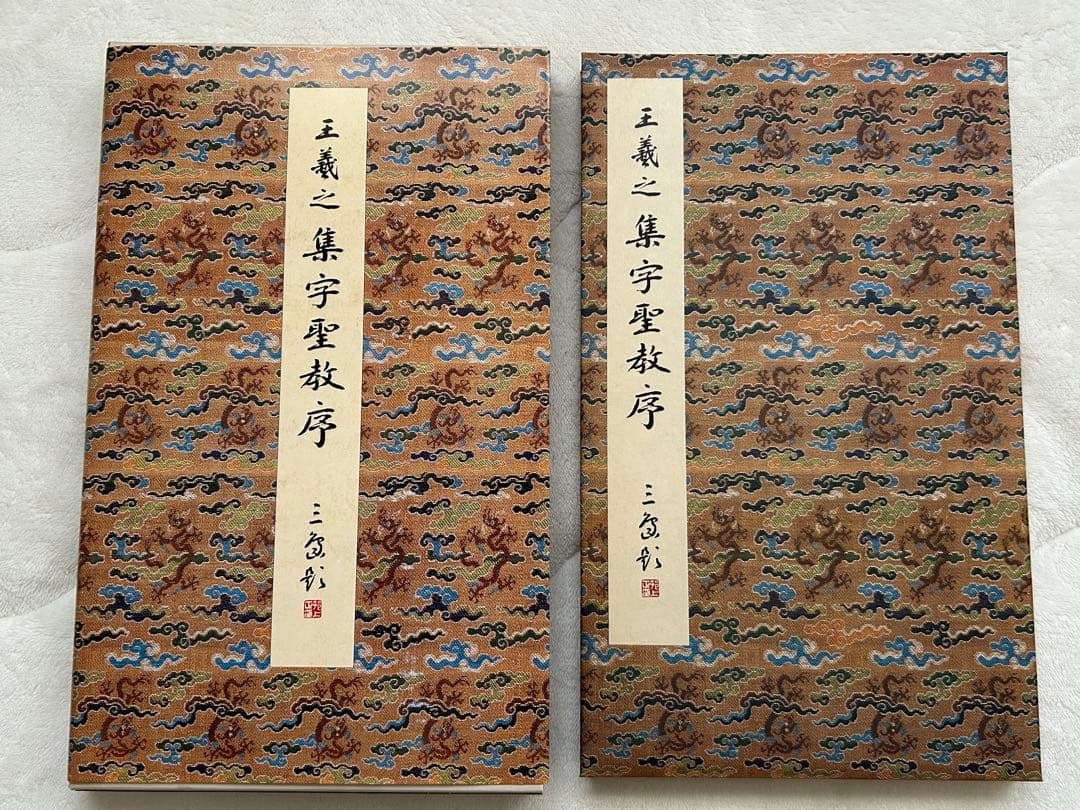 王羲之集字聖教序 三島題
王羲之集字聖教序 三島題